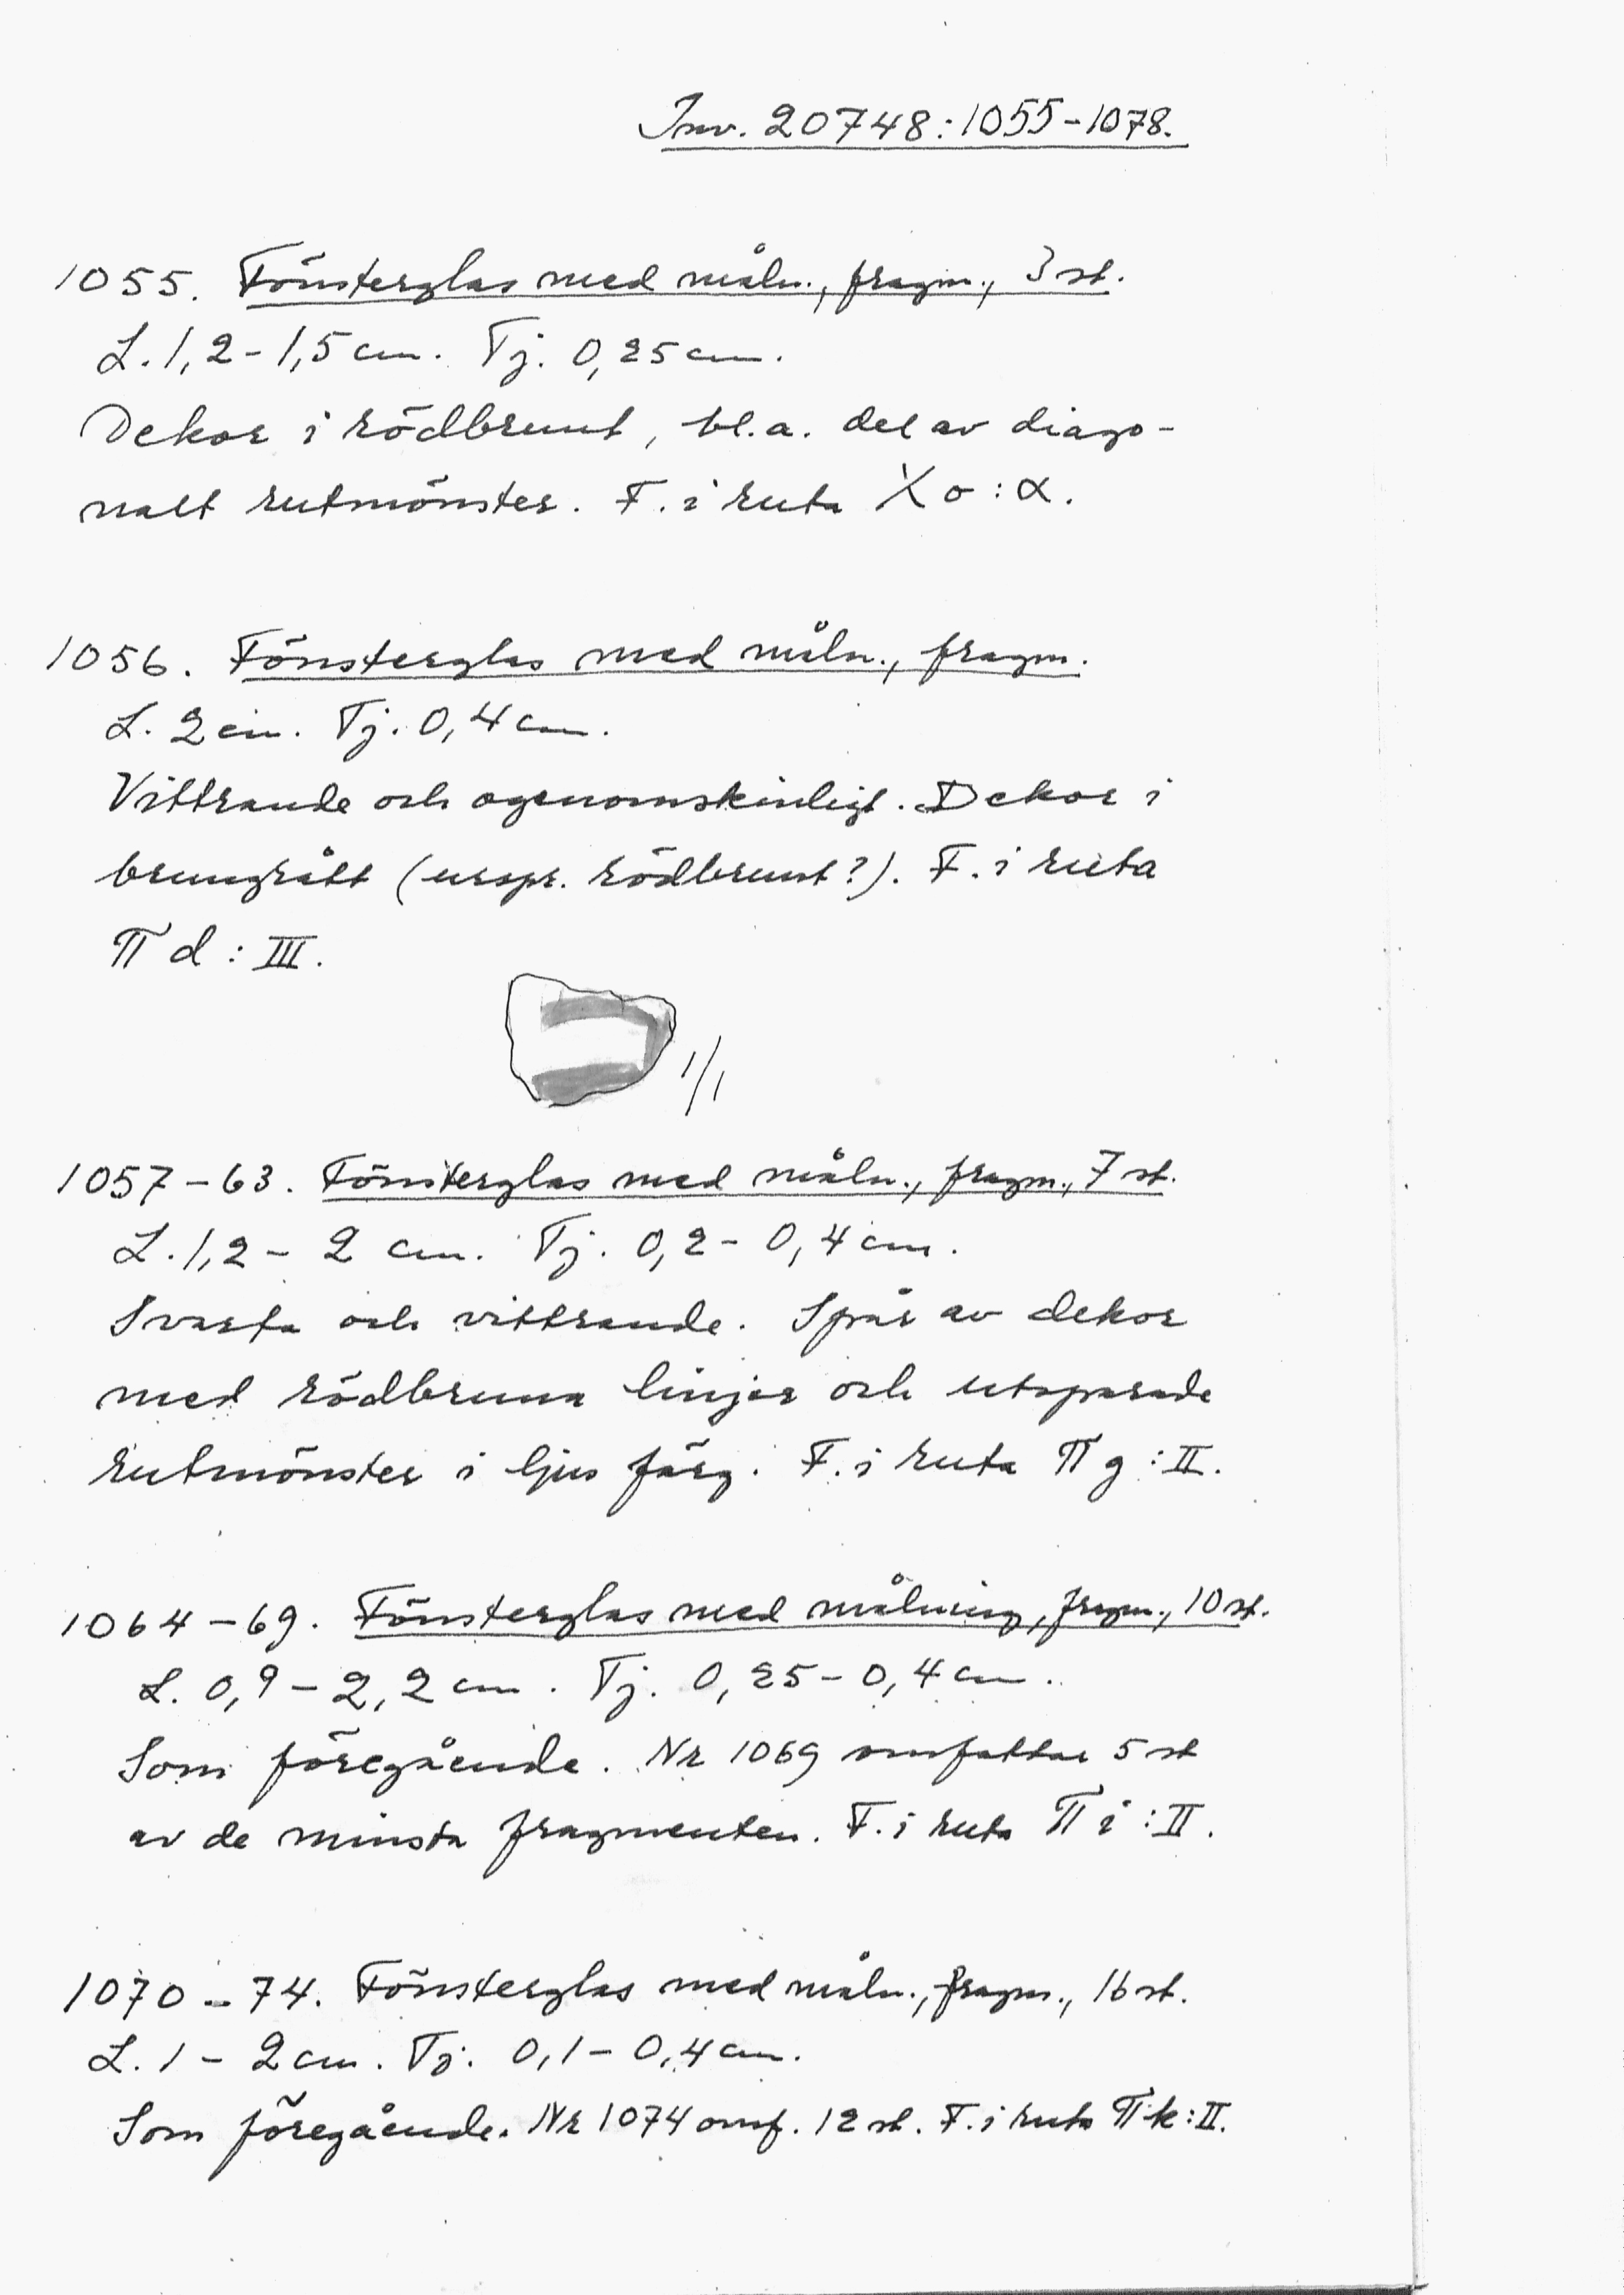 Inv. 20748:1055-1078.
1055. Fönsterglas med måln., fragm., 3 st.
L. 1,2-1,5 cm. Tj. 0,25 cm.
Dekor i rödbrunt, bl.a. del av diago-
nalt rutmönster. F. i ruta X o : α.
1056. Fönsterglas med måln., fragm.
L. 2 cm. Tj. 0,4 cm.
Vittrande och ogenomskinligt. Dekor i
brungrått (urspr. rödbrunt?). F. i ruta
π d : III.
1/1
1057-63. Fönsterglas med måln., fragm., 7 st.
L. 1,2 - 2 cm. Tj. 0,2 - 0,4 cm.
Svarta och vittrande. Spår av dekor
med rödbruna linjer och utsparade
rutmönster i ljus färg. F. i ruta π g : II.
1064-69. Fönsterglas med målning, fragm., 10 st.
L. 0,9 - 2,2 cm. Tj. 0,25 - 0,4 cm.
Som föregående. Nr 1069 omfattar 5 st
av de minsta fragmenten. F. i ruta π i : II.
1070-74. Fönsterglas med måln., fragm., 16 st.
L. 1 - 2 cm. Tj. 0,1 - 0,4 cm.
Som föregående. Nr 1074 omf. 12 st. F. i ruta π k : II.